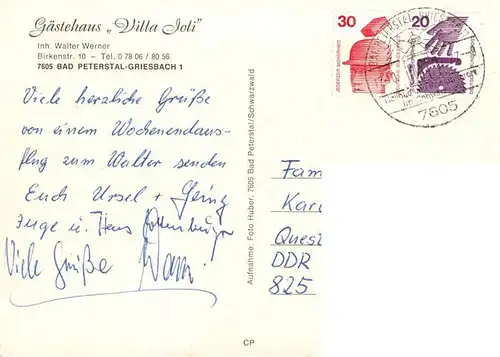 Gästehaus „Villa Joli"
Inh. Walter Werner
Birkenstr. 10 – Tel. 0 78 06 / 80 56
7605 BAD PETERSTAL-GRIESBACH 1
Viele herzliche Grüße
von einem Wochenendaus-
flug zum Walter senden
Euch Ursel +
Inge u. Hans
Viele Grüße
Aufnahme: Foto Huber, 7605 Bad Peterstal/Schwarzwald
30
20
JEDERZEIT SICHERHEIT
7605
Fam
Karl
Quest
DDR
825
CP